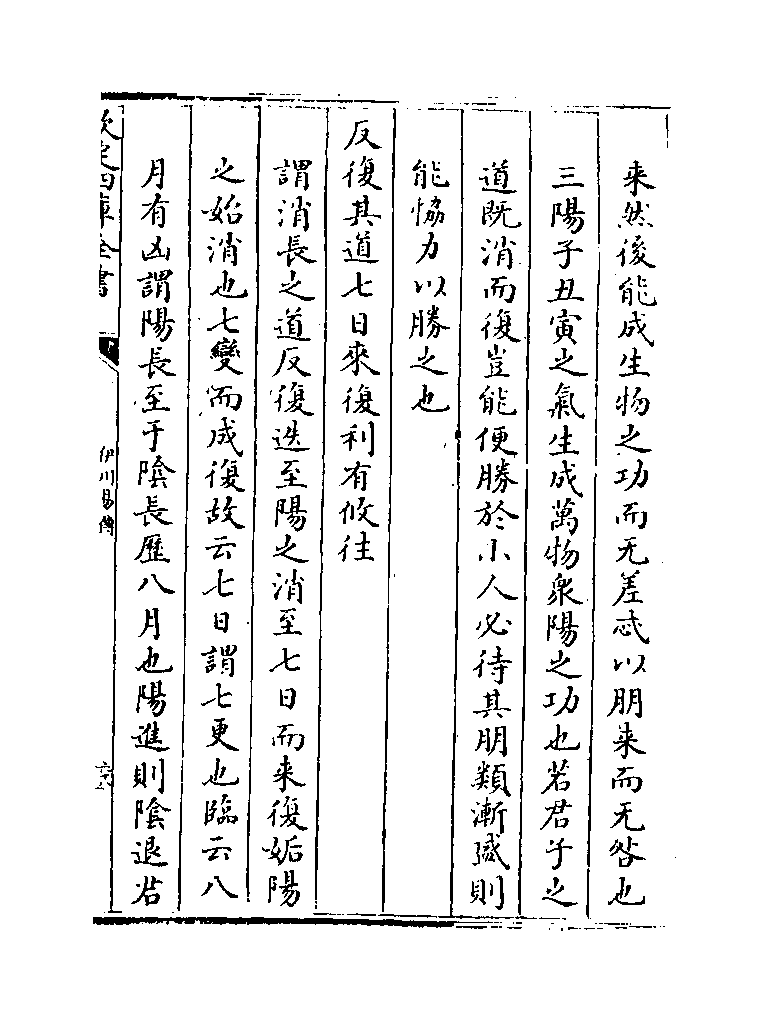 来然後能成生物之功而无差忒以朋来而无咎也
三陽子丑寅之氣生成萬物衆陽之功也若君子之
道既消而復豈能便勝於小人必待其朋類漸盛則
能恊力以勝之也
反復其道七日來復利有攸往
謂消長之道反復迭至陽之消至七日而来復姤陽
之始消也七變而成復故云七日謂七更也臨云八
月有凶謂陽長至于陰長歷八月也陽進則陰退君
欽定四庫全書
伊川易傳